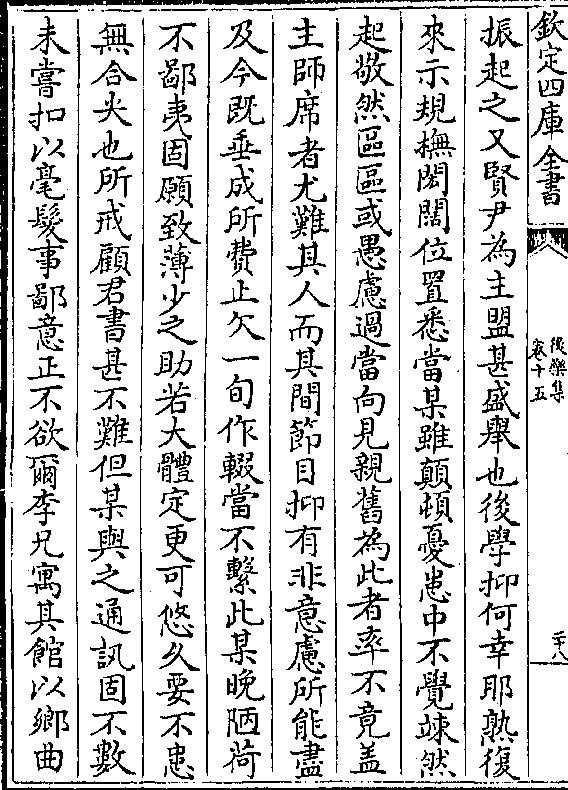 欽定四庫全書
後樂集
卷十五
二十八
振起之又賢尹為主盟甚盛舉也後學抑何幸耶熟復
來示規橅閎闊位置悉當某雖顛頓憂患中不覺竦然
起敬然區區或愚慮過當向見親舊為此者率不竟盖
主師席者尤難其人而其間節目抑有非意慮所能盡
及今既垂成所費止欠一旬作輟當不繫此某晚陋荷
不鄙夷固願致薄少之助若大體定更可悠久要不患
無合尖也所戒顧君書甚不難但某與之通訊固不數
未嘗扣以毫髮事鄙意正不欲爾李兄寓其館以鄉曲